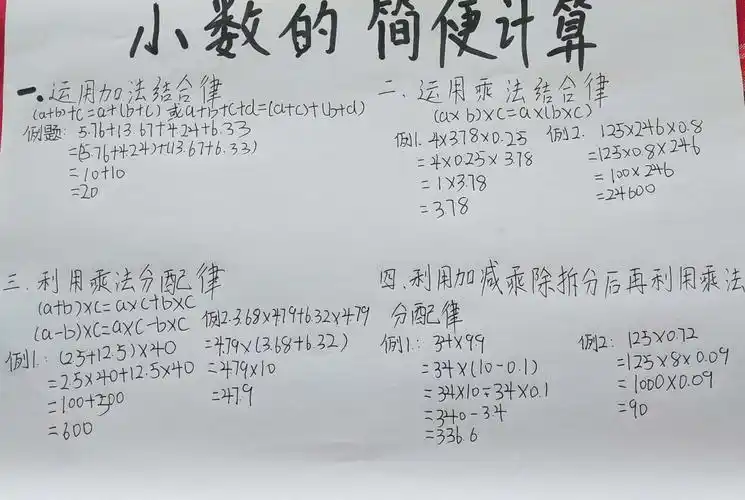 小数的简便计算
一、运用加法结合律
(a+b)+c=a+(b+c) 或a+b+c+d=(a+c)+(b+d)
例题: 5.76+13.67+4.24+6.33
=(5.76+4.24)+(13.67+6.33)
=10+10
=20
二、运用乘法结合律
(a×b)×c=a×(b×c)
例1. 4×3.78×0.25
=4×0.25×3.78
=1×3.78
=3.78
例2. 125×246×0.8
=125×0.8×246
=100×246
=24600
三、利用乘法分配律
(a+b)×c=a×c+b×c
(a-b)×c=a×c-b×c
例1.: (2.5+12.5)×40
=2.5×40+12.5×40
=100+500
=600
例2.3.68×4.79+6.32×4.79
=4.79×(3.68+6.32)
=4.79×10
=47.9
四、利用加减乘除拆分后再利用乘法
分配律
例1.: 34×9.9
=34×(10-0.1)
=34×10-34×0.1
=340-3.4
=336.6
例2: 125×0.72
=125×8×0.09
=1000×0.09
=90